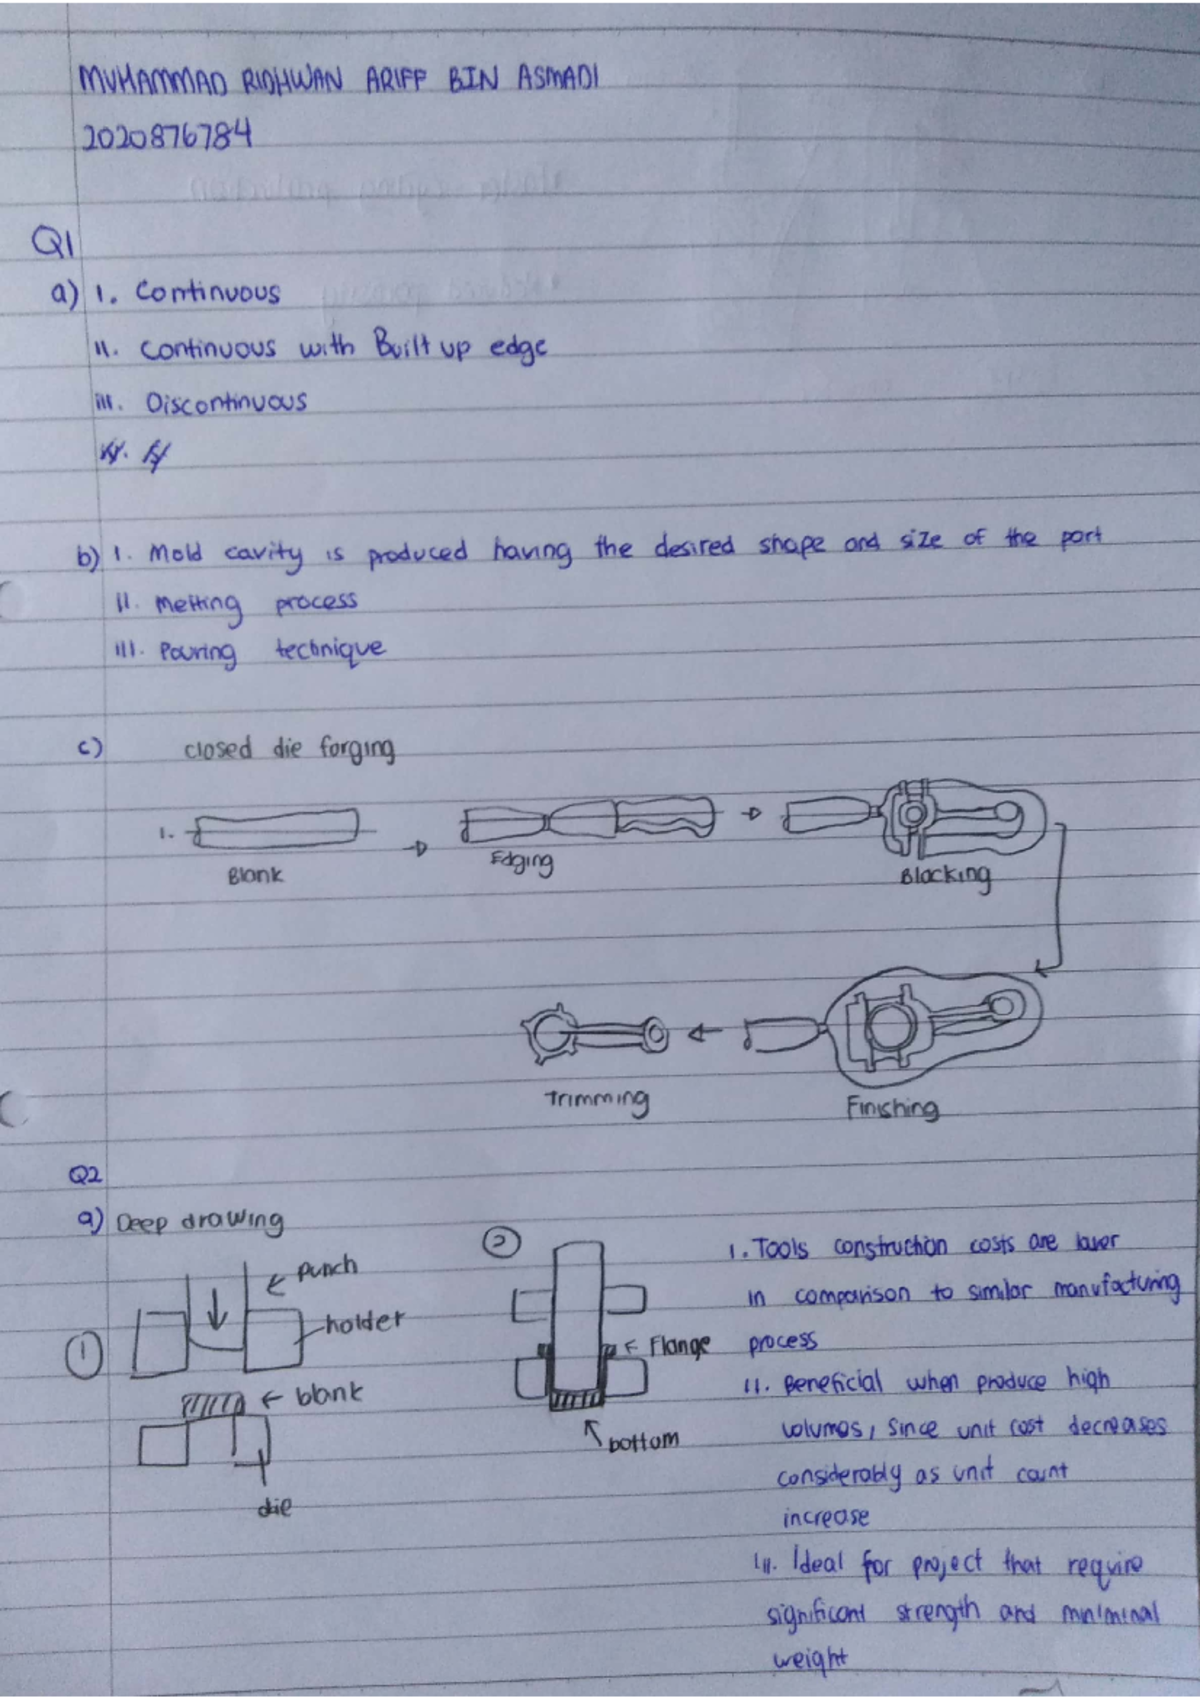 MUHAMMAD RIDHWAN ARIFF BIN ASMADI
2020876784
Q1
a) i. Continuous
ii. Continuous with Built up edge
iii. Discontinuous
b) i. Mold cavity is produced having the desired shape and size of the part
ii. Melting process
iii. Pouring technique
c) closed die forging
1.
Blank
Edging
Blocking
Trimming
Finishing
Q2
a) Deep drawing
1
punch
holder
blank
die
2
Flange
bottom
i. Tools construction costs are lower
in comparison to similar manufacturing
process
ii. Beneficial when produce high
volumes, since unit cost decreases
considerably as unit count
increase
iii. Ideal for project that require
significant strength and miniminal
weight